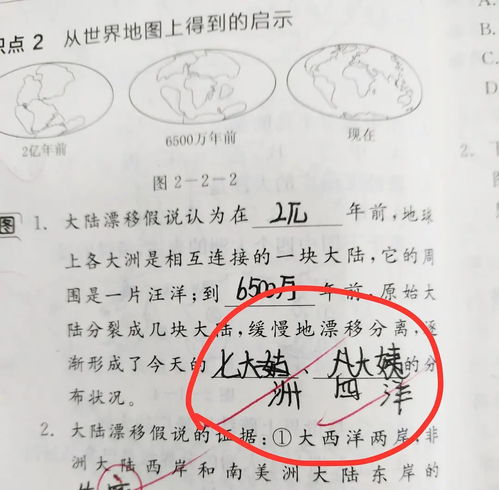 识点 2 从世界地图上得到的启示
2亿年前
6500万年前
现在
图 2-2-2
图 1. 大陆漂移假说认为在 2亿 年前,地球
上各大洲是相互连接的一块大陆,它的周
围是一片汪洋;到 6500万 年前,原始大
陆分裂成几块大陆,缓慢地漂移分离,逐
渐形成了今天的 七大姑、八大姨 的分
洲 四 洋
布状况。
2. 大陆漂移假说的证据:①大西洋两岸,非
洲大陆西岸和南美洲大陆东岸的
A.
B.
C.
D
2.